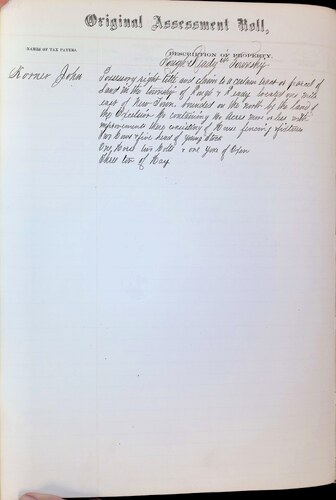 Original Assessment Roll,
NAMES OF TAX PAYERS.
DESCRIPTION OF PROPERTY.
Rough & Ready Township
Korner John
Possessory right title and claim to a certain tract or parcel of
Land in the township of Rough & Ready located one mile
east of New Town bounded on the north by the land of
the Excelsior Co containing 160 Acres more or less with
improvements thereon consisting of House fencing &
Cows & five head of young Stock
One Horse two Colts & one Yoke of Oxen
Three tons of Hay